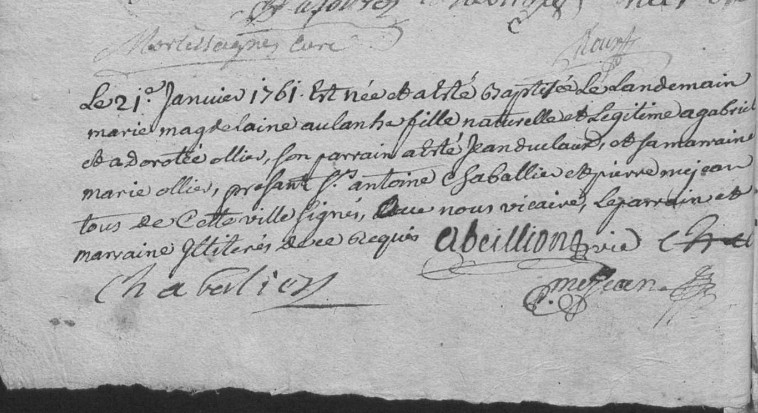 Mortessagnes curé
Le 21.e Janvier 1761. Est née et a esté Baptisée Le Landemain
marie magdelaine aulanhe fille naturelle et Légitime a gabriel
et a dorotée ollier, son parrain a esté Jean duclaux, et sa marraine
marie ollier, présant Sr. antoine Chaballier et pierre mejean
tous de Cette ville signés, avec nous vicaire, Le parrain et
marraine Illiterés de ce Requis abeillion vic
Chaballier p. mejean